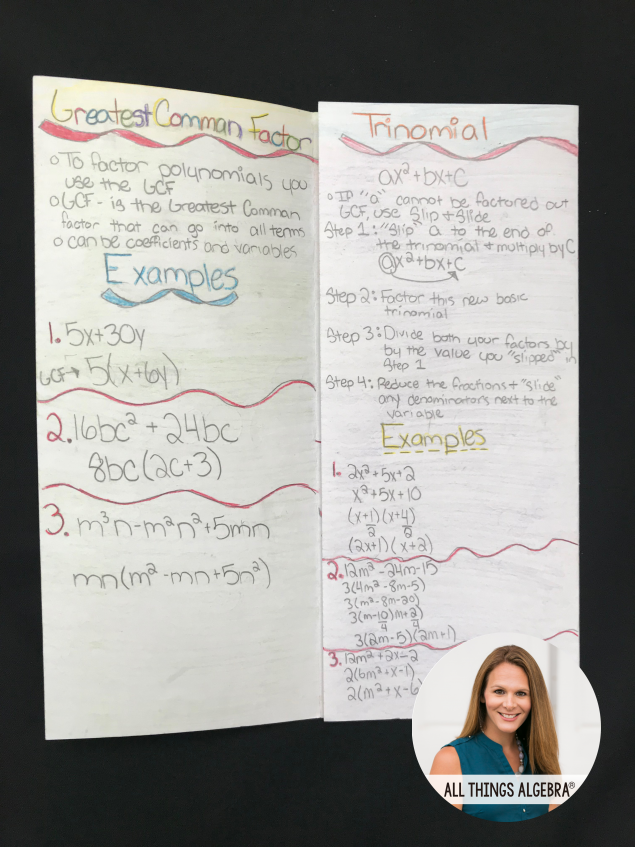 Greatest Comman Factor
o To factor polynomials you
use the GCF
o GCF - is the Greatest Comman
factor that can go into all terms
o can be coefficients and variables
Examples
1. 5x+30y
GCF→ 5(x+6y)
2. 16bc² + 24bc
8bc(2c+3)
3. m³n-m²n²+5mn
mn(m²-mn+5n²)
Trinomial
ax²+bx+c
o If "a" cannot be factored out
GCF, use Slip + Slide
Step 1: "Slip" a to the end of
the trinomial + multiply by C
ax²+bx+c
Step 2: Factor this new basic
trinomial
Step 3: Divide both your factors by
by the value you "slipped" in
Step 1
Step 4: Reduce the fractions + "slide"
any denominators next to the
variable
Examples
1. 2x²+5x+2
x²+5x+10
(x+1/2)(x+4/2)
(2x+1)(x+2)
2. 12m² -24m-15
3(4m²-8m-5)
3(m²-8m-20)
3(m-10/4)(m+2/4)
3(2m-5)(2m+1)
3. 12m²+2x-2
2(6m²+x-1)
2(m²+x-6)
ALL THINGS ALGEBRA®